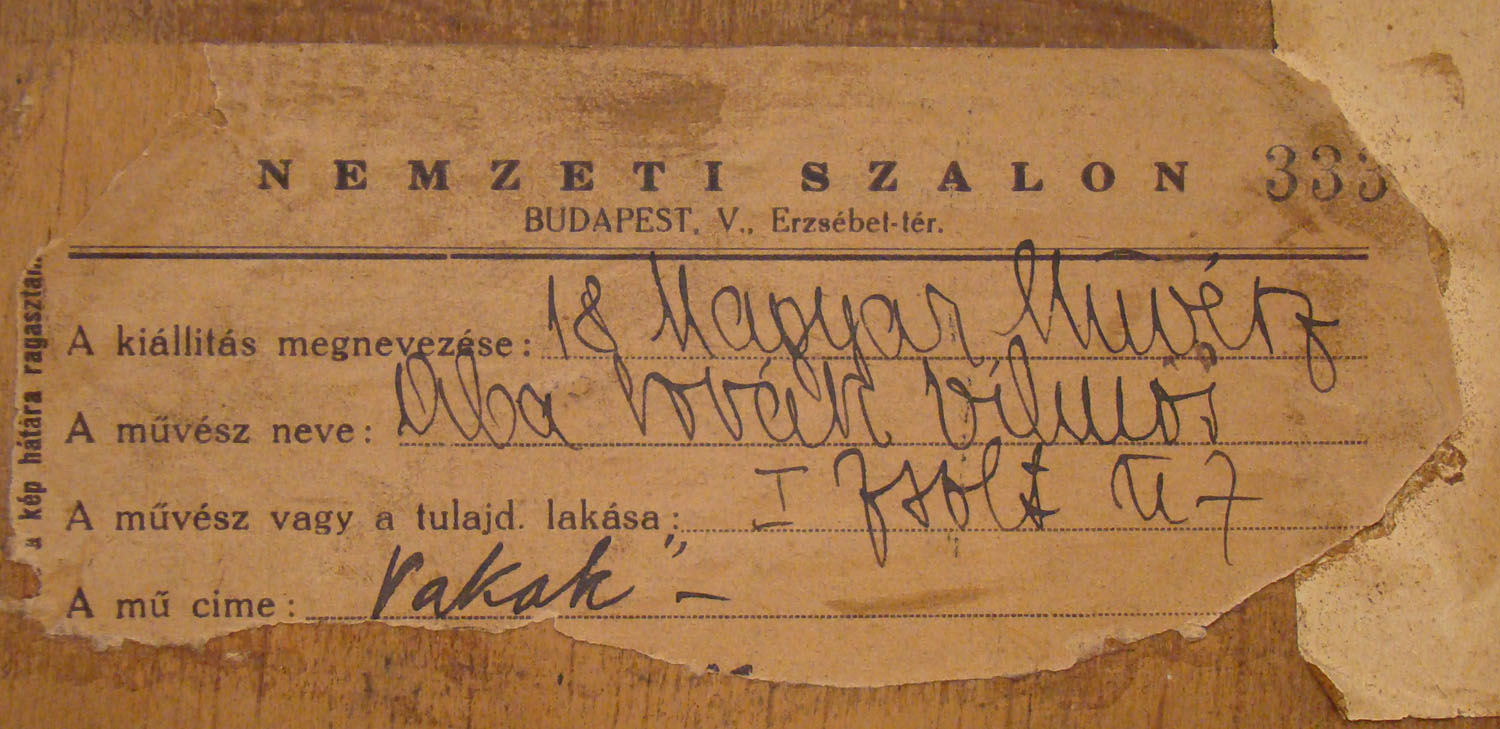 NEMZETI SZALON 333
BUDAPEST, V., Erzsébet-tér.
A kiállitás megnevezése: 18 Magyar Művész
A művész neve: Aba Novák Vilmos
A művész vagy a tulajd. lakása: I Zsolt u 7
A mű cime: Vakok" –
a kép hátára ragasztan